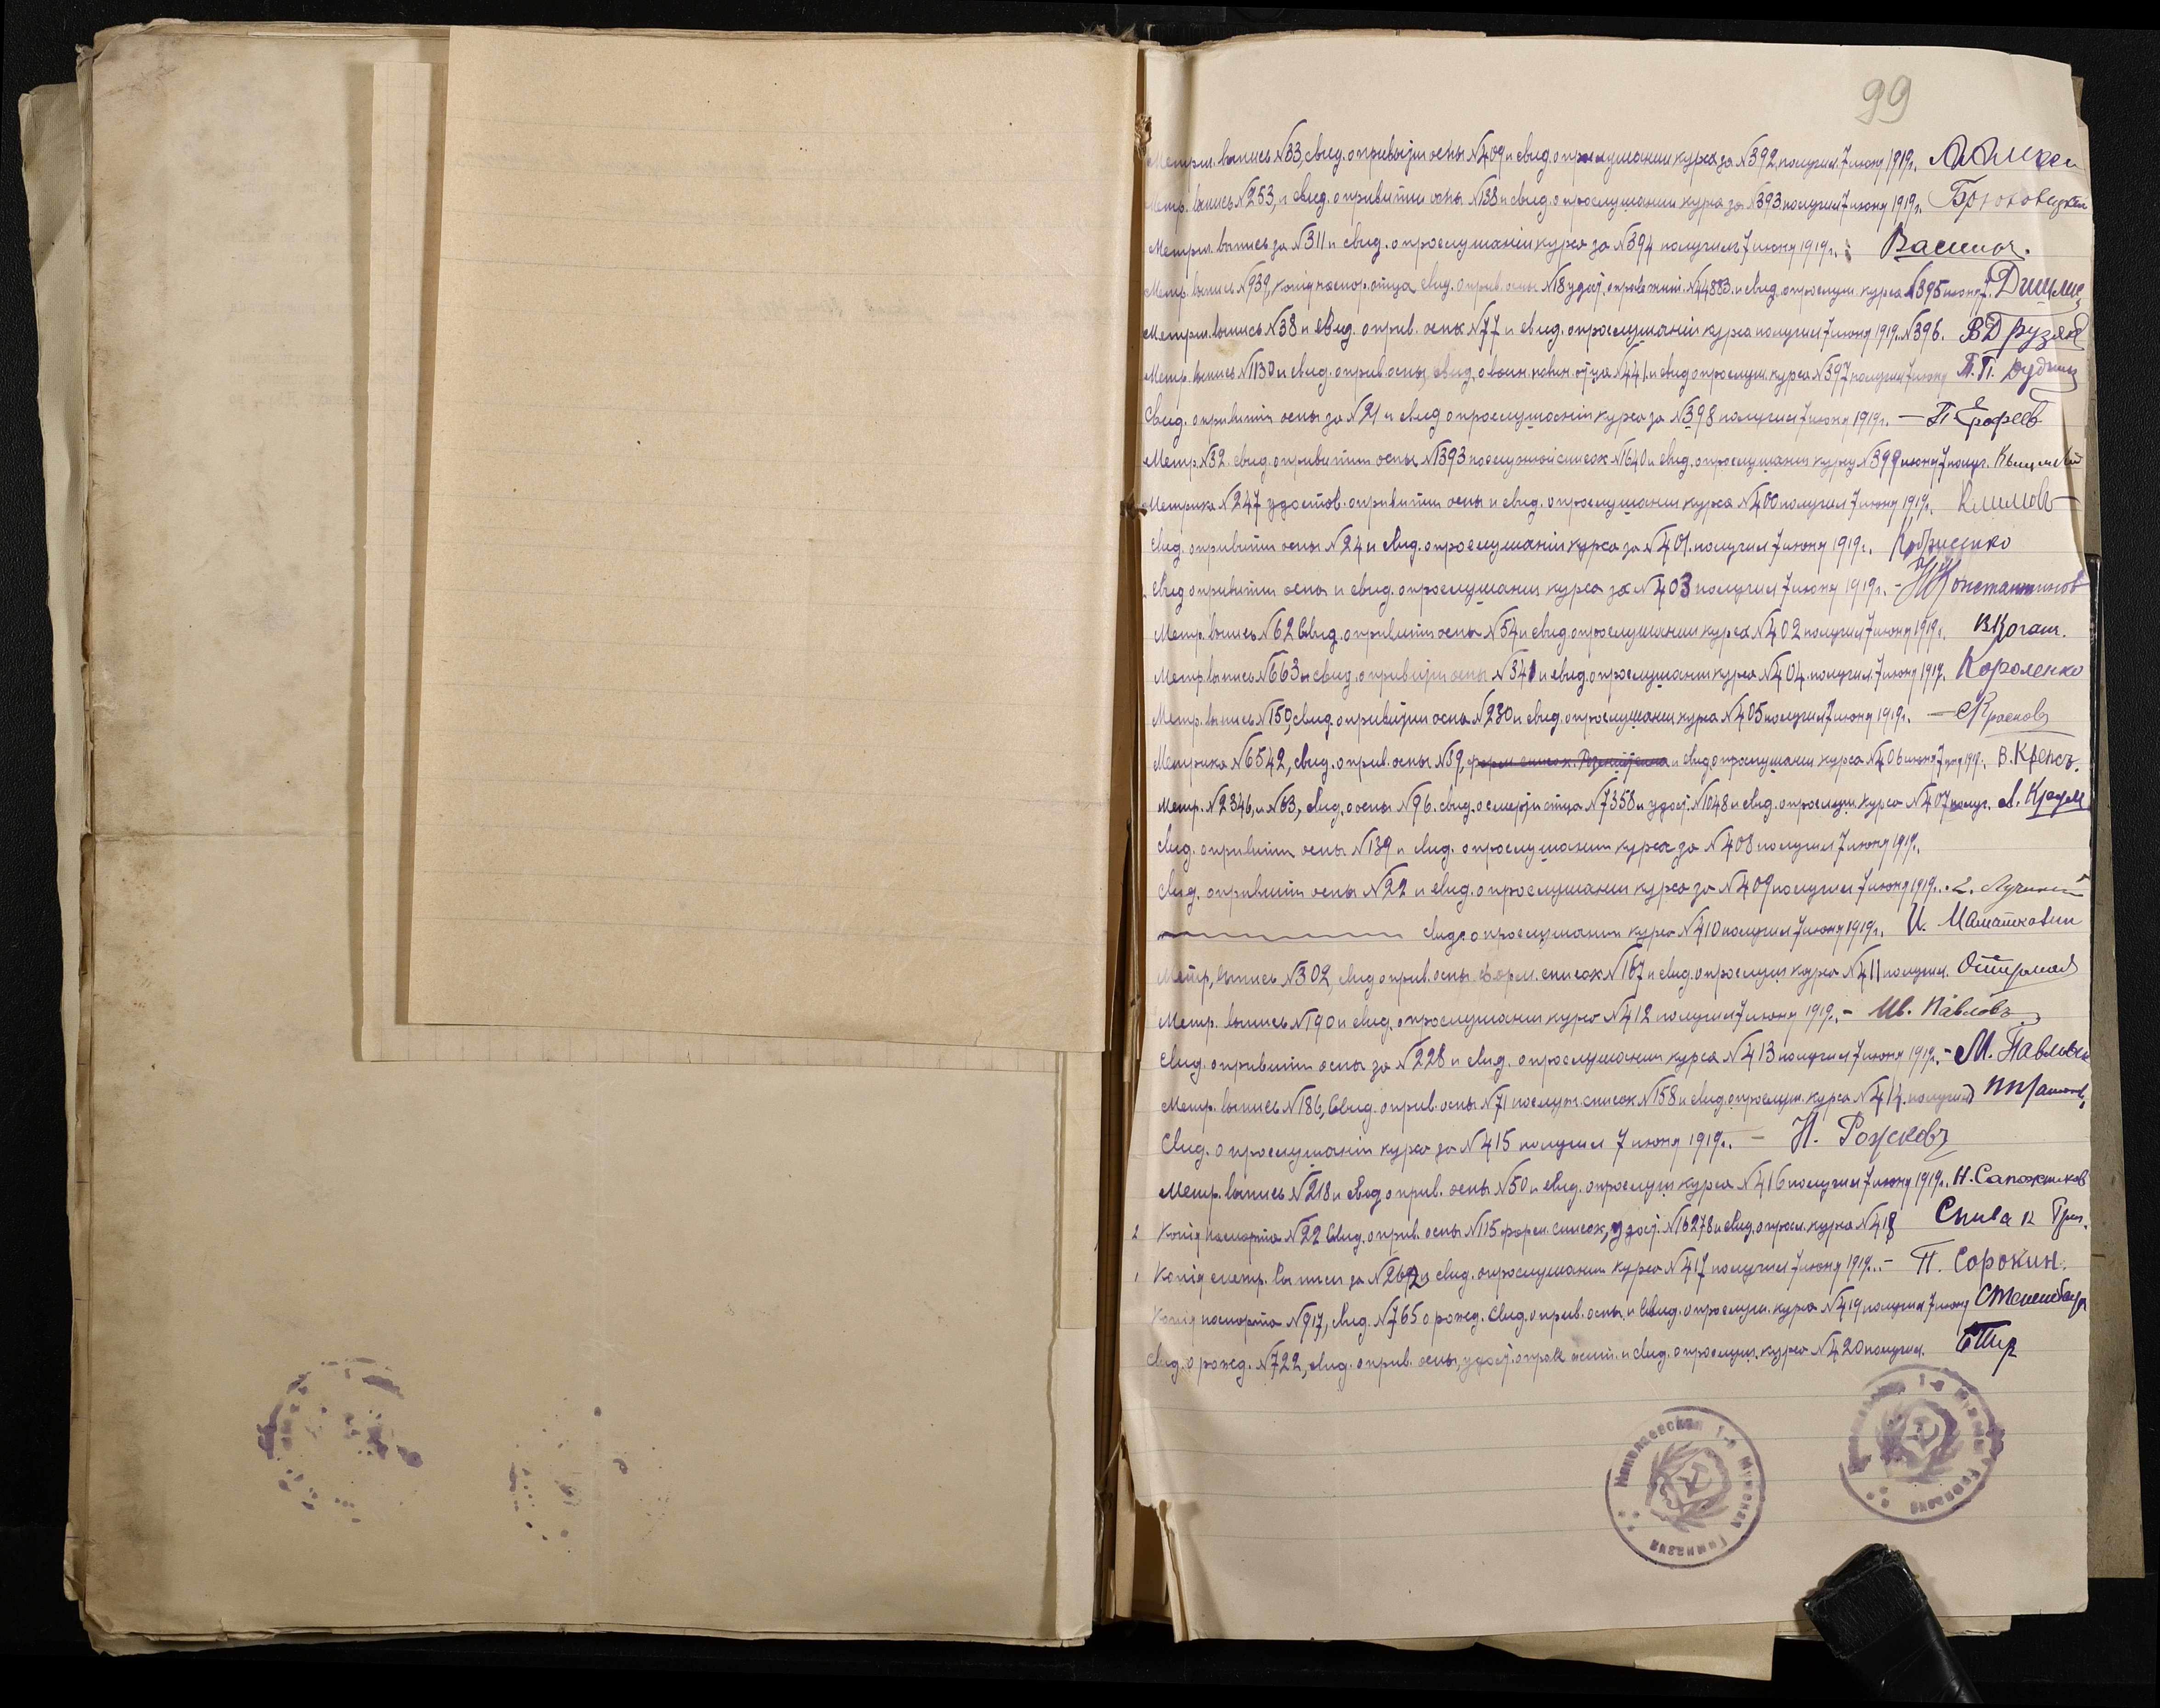 99
Метрич. выпись №33, свид. о привитіи оспы №409 и свид. о прослушании курса за №392 получил 7 июня 1919г.
Метр. выпись №253, и свид. о привитии оспы №138 и свид. о прослушании курса за №393 получил 7 июня 1919г.
Метрич. выпись за №311 и свид. о прослушаніи курса за №394 получилъ 7 июня 1919г.
Метр. выпись №939, копія паспор. отца свид. о прив. оспы №18 удост. №44883 и свид. о прослуш. курса №395 июня 7.
Метрич. выпись №38 и свид. о прив. оспы №77 и свид. о прослушаніи курса получил 7 июня 1919г. №396. В Друзяк
Метр. выпись №1130 и свид. о прив. оспы, свид. о воин. повин. отца №441 и свид. о прослуш. курса №397 получил 7 июня
Свид. о привитіи оспы за №21 и свид. о прослушаніи курса за №398 получил 7 июня 1919г. — П. Ерофеев
Метр. №32. свид. о привитіи оспы №1393 послужной список №1640 и свид. о прослушании курса №399 июня 7 получ.
Метрика №247 удостов. о привитіи оспы и свид. о прослушании курса №400 получил 7 июня 1919г. Климовъ
Свид. о привитіи оспы №24 и свид. о прослушаніи курса за №401. получил 7 июня 1919г.
Свид. о привитіи оспы и свид. о прослушании курса за №403 получил 7 июня 1919г. - Константинов
Метр. выпись №62 Свид. о привитіи оспы №54 и свид. о прослушании курса №402 получил 7 июня 1919г. В Коган.
Метр. выпись №663 и свид. о привитіи оспы №341 и свид. о прослушании курса №404. получил 7 июня 1919. Короленко
Метр. выпись №150, свид. о привитіи оспы №230 и свид. о прослушании курса №405 получил 7 июня 1919г. — Краснов
Метрика №6542, свид. о прив. оспы №39, и свид. о прослушании курса №406 июня 7 1919г. В. Крепсъ.
Метр. №2346, и №63, свид. о оспы №96. свид. о смерти отца №7358 и удост. №1048 и свид. о прослуш. курса №407 получ.
Свид. о привитіи оспы №139 и свид. о прослушании курса за №408 получил 7 июня 1919.
Свид. о привитіи оспы №22 и свид. о прослушании курса за №409 получил 7 июня 1919г.
Свид. о прослушании курса №410 получил 7 июня 1919г. И.
Метр. выпись №302, свид. о прив. оспы форм. список №167 и свид. о прослуш. курса №411 получил.
Метр. выпись №190 и свид. о прослушании курса №412 получил 7 июня 1919г. - Ив. Павловъ
Свид. о привитіи оспы за №228 и свид. о прослушании курса №413 получил 7 июня 1919г. - М. Павлов
Метр. выпись №186, Свид. о прив. оспы №71 послуж. список №158 и свид. о прослуш. курса №414. получил
Свид. о прослушаніи курса за №415 получил 7 июня 1919г. — Н. Рожковъ
Метр. выпись №218 и свид. о прив. оспы №50 и свид. о прослуш. курса №416 получил 7 июня 1919г. Н. Сапожников
2 Копія паспорта №22 Свид. о прив. оспы №115 форм. список, удост. №16278 и свид. о просл. курса №418
1 Копія с метр. выписи за №2692 и свид. о прослушании курса №417 получил 7 июня 1919г. - П. Сорокин.
Копія паспорта №917, свид. №765 о рожд. Свид. о прив. оспы и свид. о прослуш. курса №419 получил 7 июня
Свид. о рожд. №722, свид. о прив. оспы, удост. и свид. о прослуш. курса №420 получил.
Николаевская 1-я Мужская Гимназия
1-я Мужская Гимназия